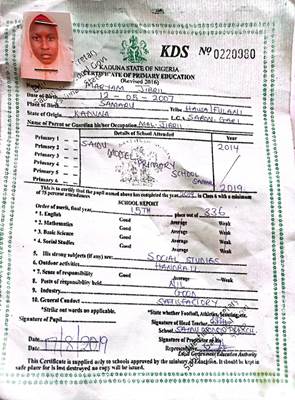 KDS No 0220980
KADUNA STATE OF NIGERIA
CERTIFICATE OF PRIMARY EDUCATION
(Revised 2016)
MARYAM JIBRIL
Date of Birth 12-05-2007
Place of Birth SAMARU Tribe HAUSA/FULANI
State of Origin KADUNA L.G.A SABON GARI
Name of Parent or Guardian his/her Occupation MAL. JIBRIL
Details of School Attended
Primary 1 SAIRU 2014
Primary 2 MODEL
Primary 3 PRIMARY
Primary 4 SCHOOL
Primary 5
Primary 6 2019
This is to certify that the pupil named above has completed the year 2019 in Class 6 with a minimum of 75 percent attendances
SCHOOL REPORT
Order of merit, final year 15TH place out of 336
* 1. English Good Average Weak
* 2. Mathematics Good Average Weak
* 3. Basic Science Good Average Weak
* 4. Social Studies Good Average Weak
5. His strong subjects (if any) are: SOCIAL STUDIES
6. Outdoor activities HANDBALL
* 7. Sense of responsibility Good Average Weak
8. Posts of responsibility held NIL
9. Industry GOOD
10. General Conduct SATISFACTORY
*Strike out words no applicable. *State whether Football, Athletics, Scouting, etc.
Signature of Pupil Signature of Head Teacher
School
Signature of Proprietor or His
Date 17/8/2019 Representative
Local Government Education Authority
This Certificate is supplied only to schools approved by the ministry of Education. It should be kept in safe place for is lost destroyed no copy will be issued.